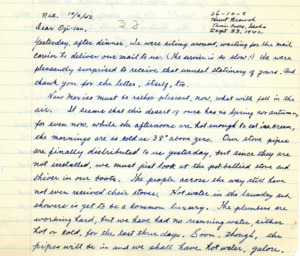 Rec. 10/2/42
26-10-C
Hunt Branch
Twin Falls, Idaho
Sept. 23, 1942
Dear Oji-san,
Yesterday, after dinner, we were sitting around, waiting for the mail
carrier to deliver our mail to us. (The service is so slow!) We were
pleasantly surprised to receive that unusual stationery of yours. And
thank you for the letter, truly, too.
New Mexico must be rather pleasant, now, what will fall in the
air. It seems that this desert of ours has no Spring nor autumn,
for even now, while the afternoons are hot enough to eat ice cream,
the mornings are as cold as 38° above zero. Our stove pipes
are finally distributed to us yesterday, but since they are
not installed, we must just look at the pot-bellied stove and
shiver in our boots. The people across the way still have
not even received their stoves. Hot water in the laundry and
showers is yet to be a common luxury. The plumbers are
working hard, but we have had no running water, either
hot or cold, for the last three days. Soon, though, the
pipes will be in and we shall have hot water, galore.